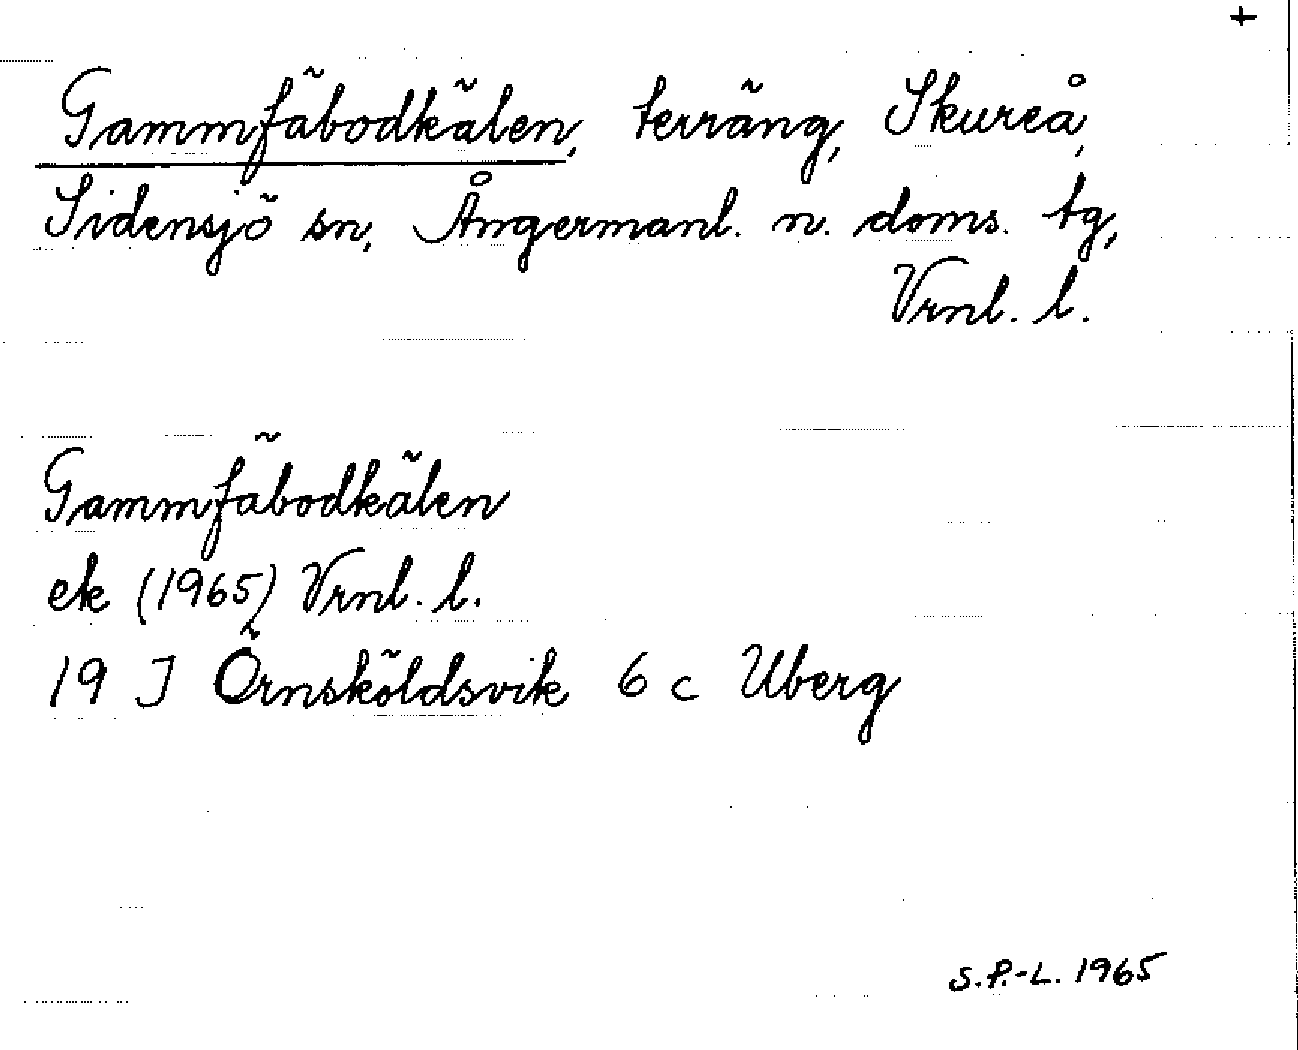 +
Gammfäbodkälen, terräng, Skureå,
Sidensjö sn, Ångermanl. n. doms. tg,
Vrnl. l.
Gammfäbodkälen
ek (1965) Vrnl. l.
19 J Örnsköldsvik 6 c Uberg
S.P.-L. 1965